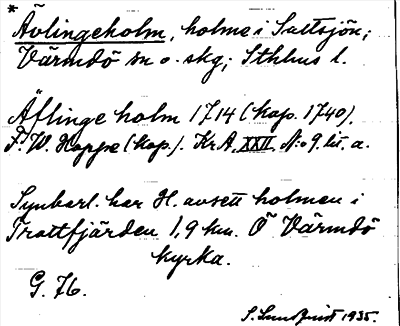 * Ävlingeholm, holme i Saltsjön;
Värmdö sn o. skg; Sthlms l.
Äflinge holm 1714 (kop. 1740),
F. W. Hoppe (kop.). Kr A, XXII, N:o 9. lit. a.
Synbarl. har H. avsett holmen i
Trattfjärden 1,9 km. Ö Värmdö
kyrka.
G. 76.
S. Lundquist 1935.